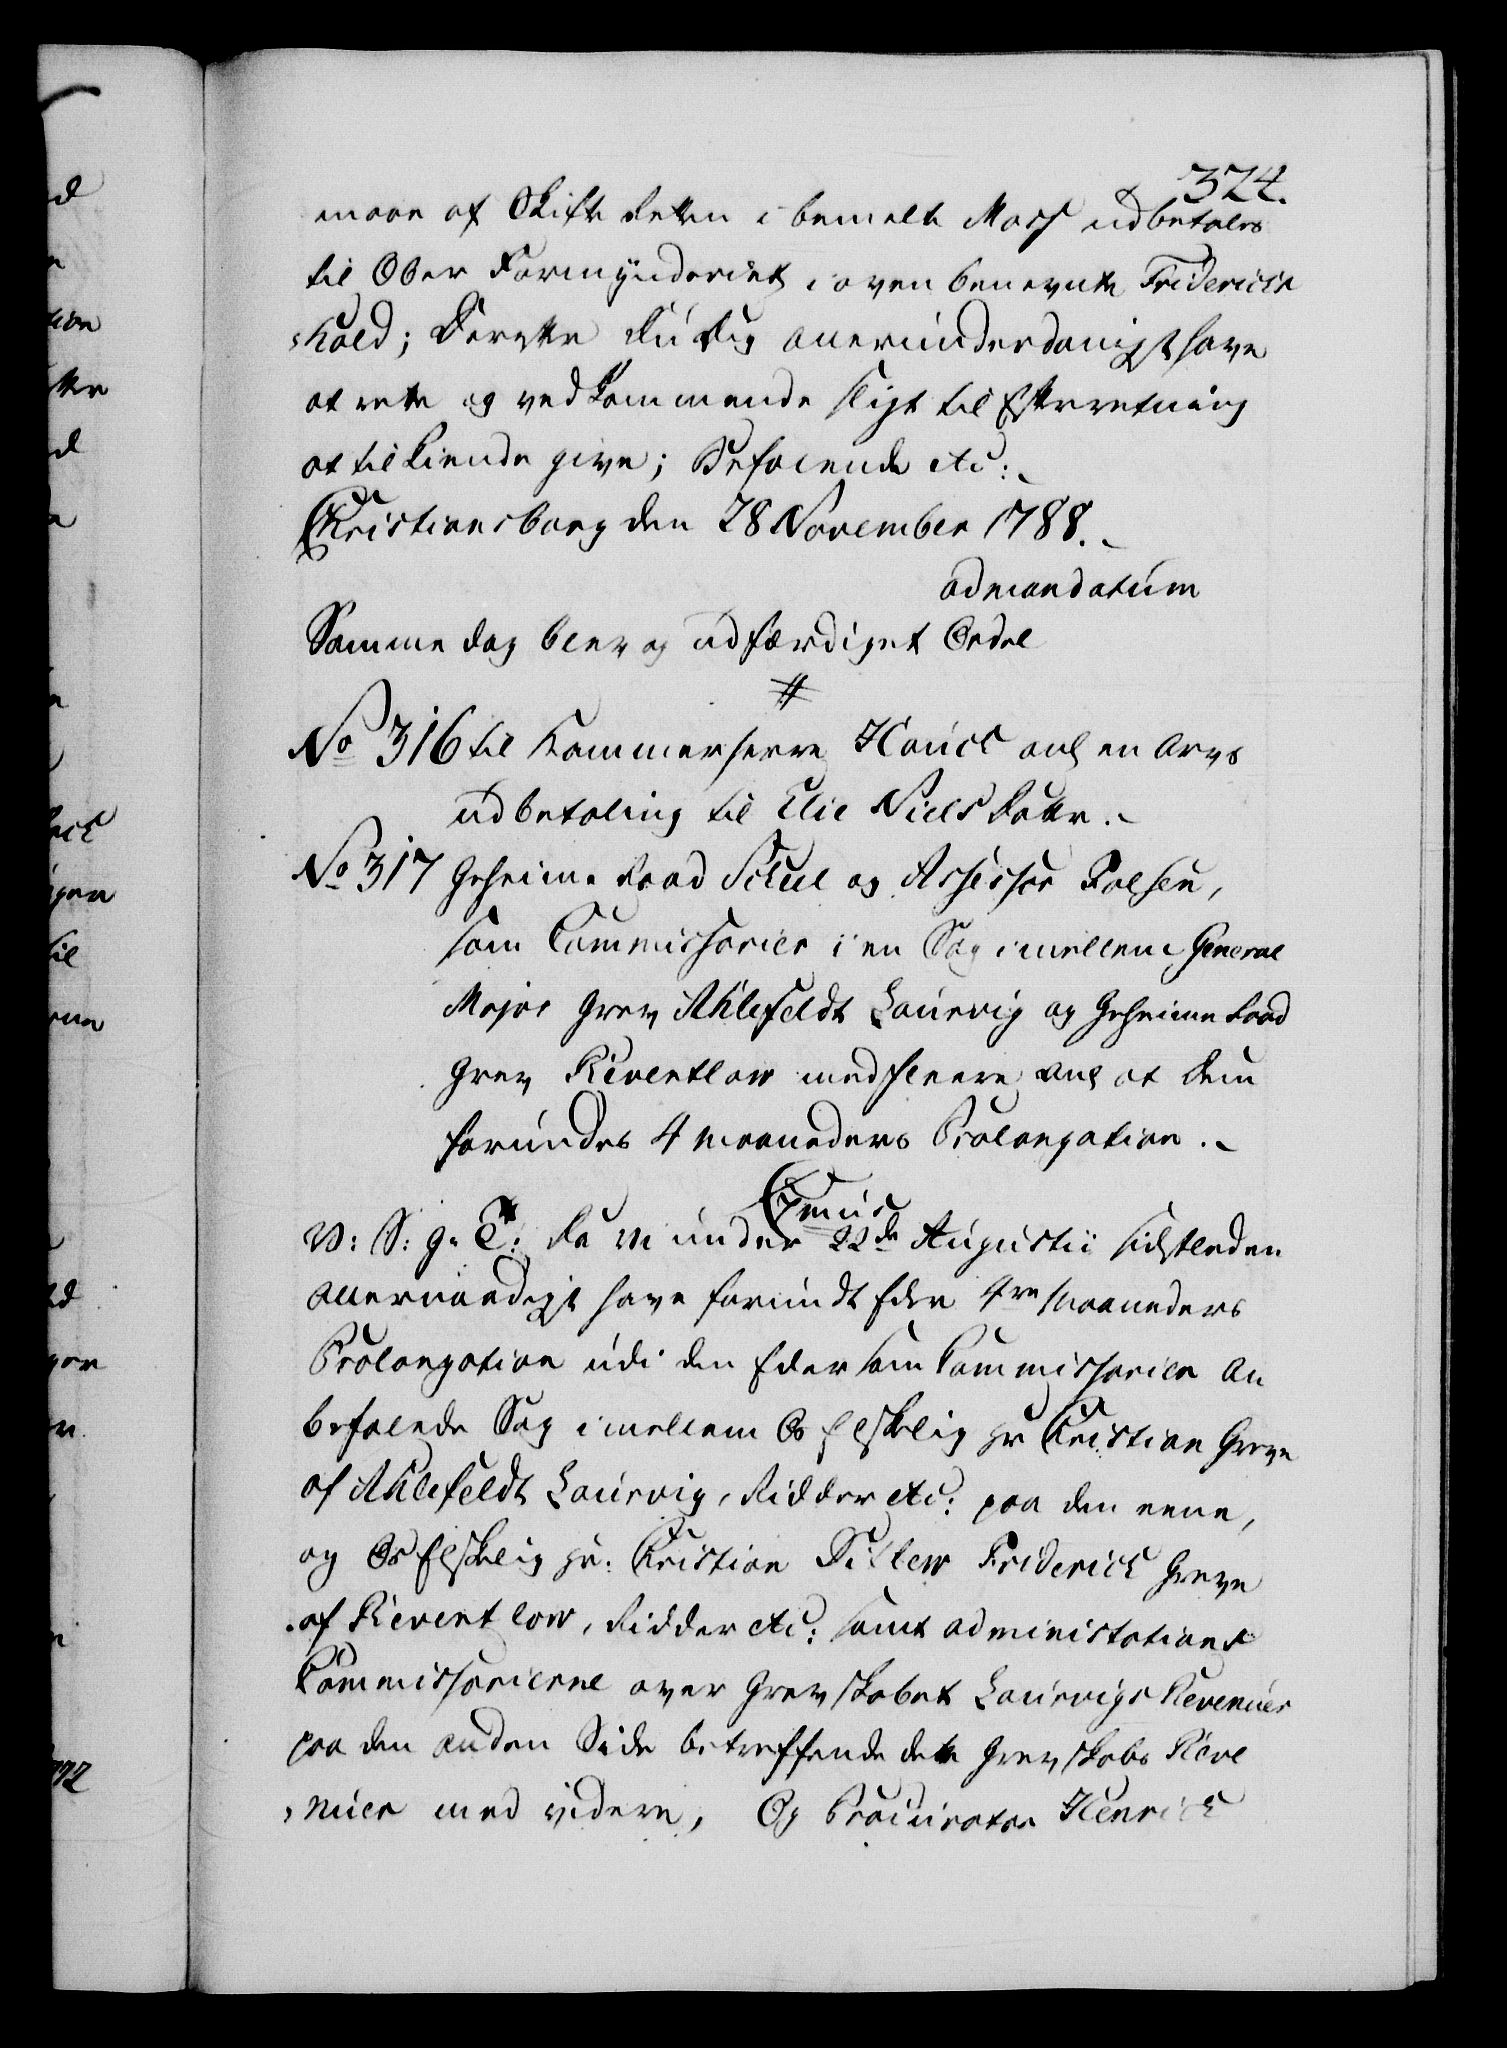 324.
maae af Skifte Retten i bemelte Moss udbetales
til Ober Formynderiet i oven benevnte Friderichs
-hald; Derefter Du Dig allerunderdanigst have
at rette og vedkommende sligt til Efterretning
at tilkiende give; Befalende etc:
Christiansborg den 28 November 1788.
ad mandatum
Samme dag blev og udfærdiget Ordre
#
No 316 til Kammerherre Hauch anl en Arvs
udbetaling til Elie Niels Datter.
No 317 Geheime Raad Scheel og Assessor Poulsen,
som Commissarier i en Sag imellem General
Major Grev Ahlefeldt Laurvig og Geheime Raad
Grev Reventlow med fleere, anl at dem
forundes 4 Maaneders Prolongation.
Cx mus
V: S: G: T: Da Vi under 22de Augustii sidstleden
allernaadigst have forundt Eder 4re Maaneders
Prolongation udi den Eder som Commissarier an
befalede Sag imellem Os Elskelig Hr Christian Greve
af Ahlefeldt Laurvig, Ridder etc: paa den eene,
og Os Elskelig Hr: Christian Ditlew Friderich Greve
af Reventlow, Ridder etc: samt administrations
Commissarierne over Grevskabet Laurvigs Revenuer
paa den anden Side betreffende dette Grevskabs Reve
-nuer med videre, Og Procurator Henrich